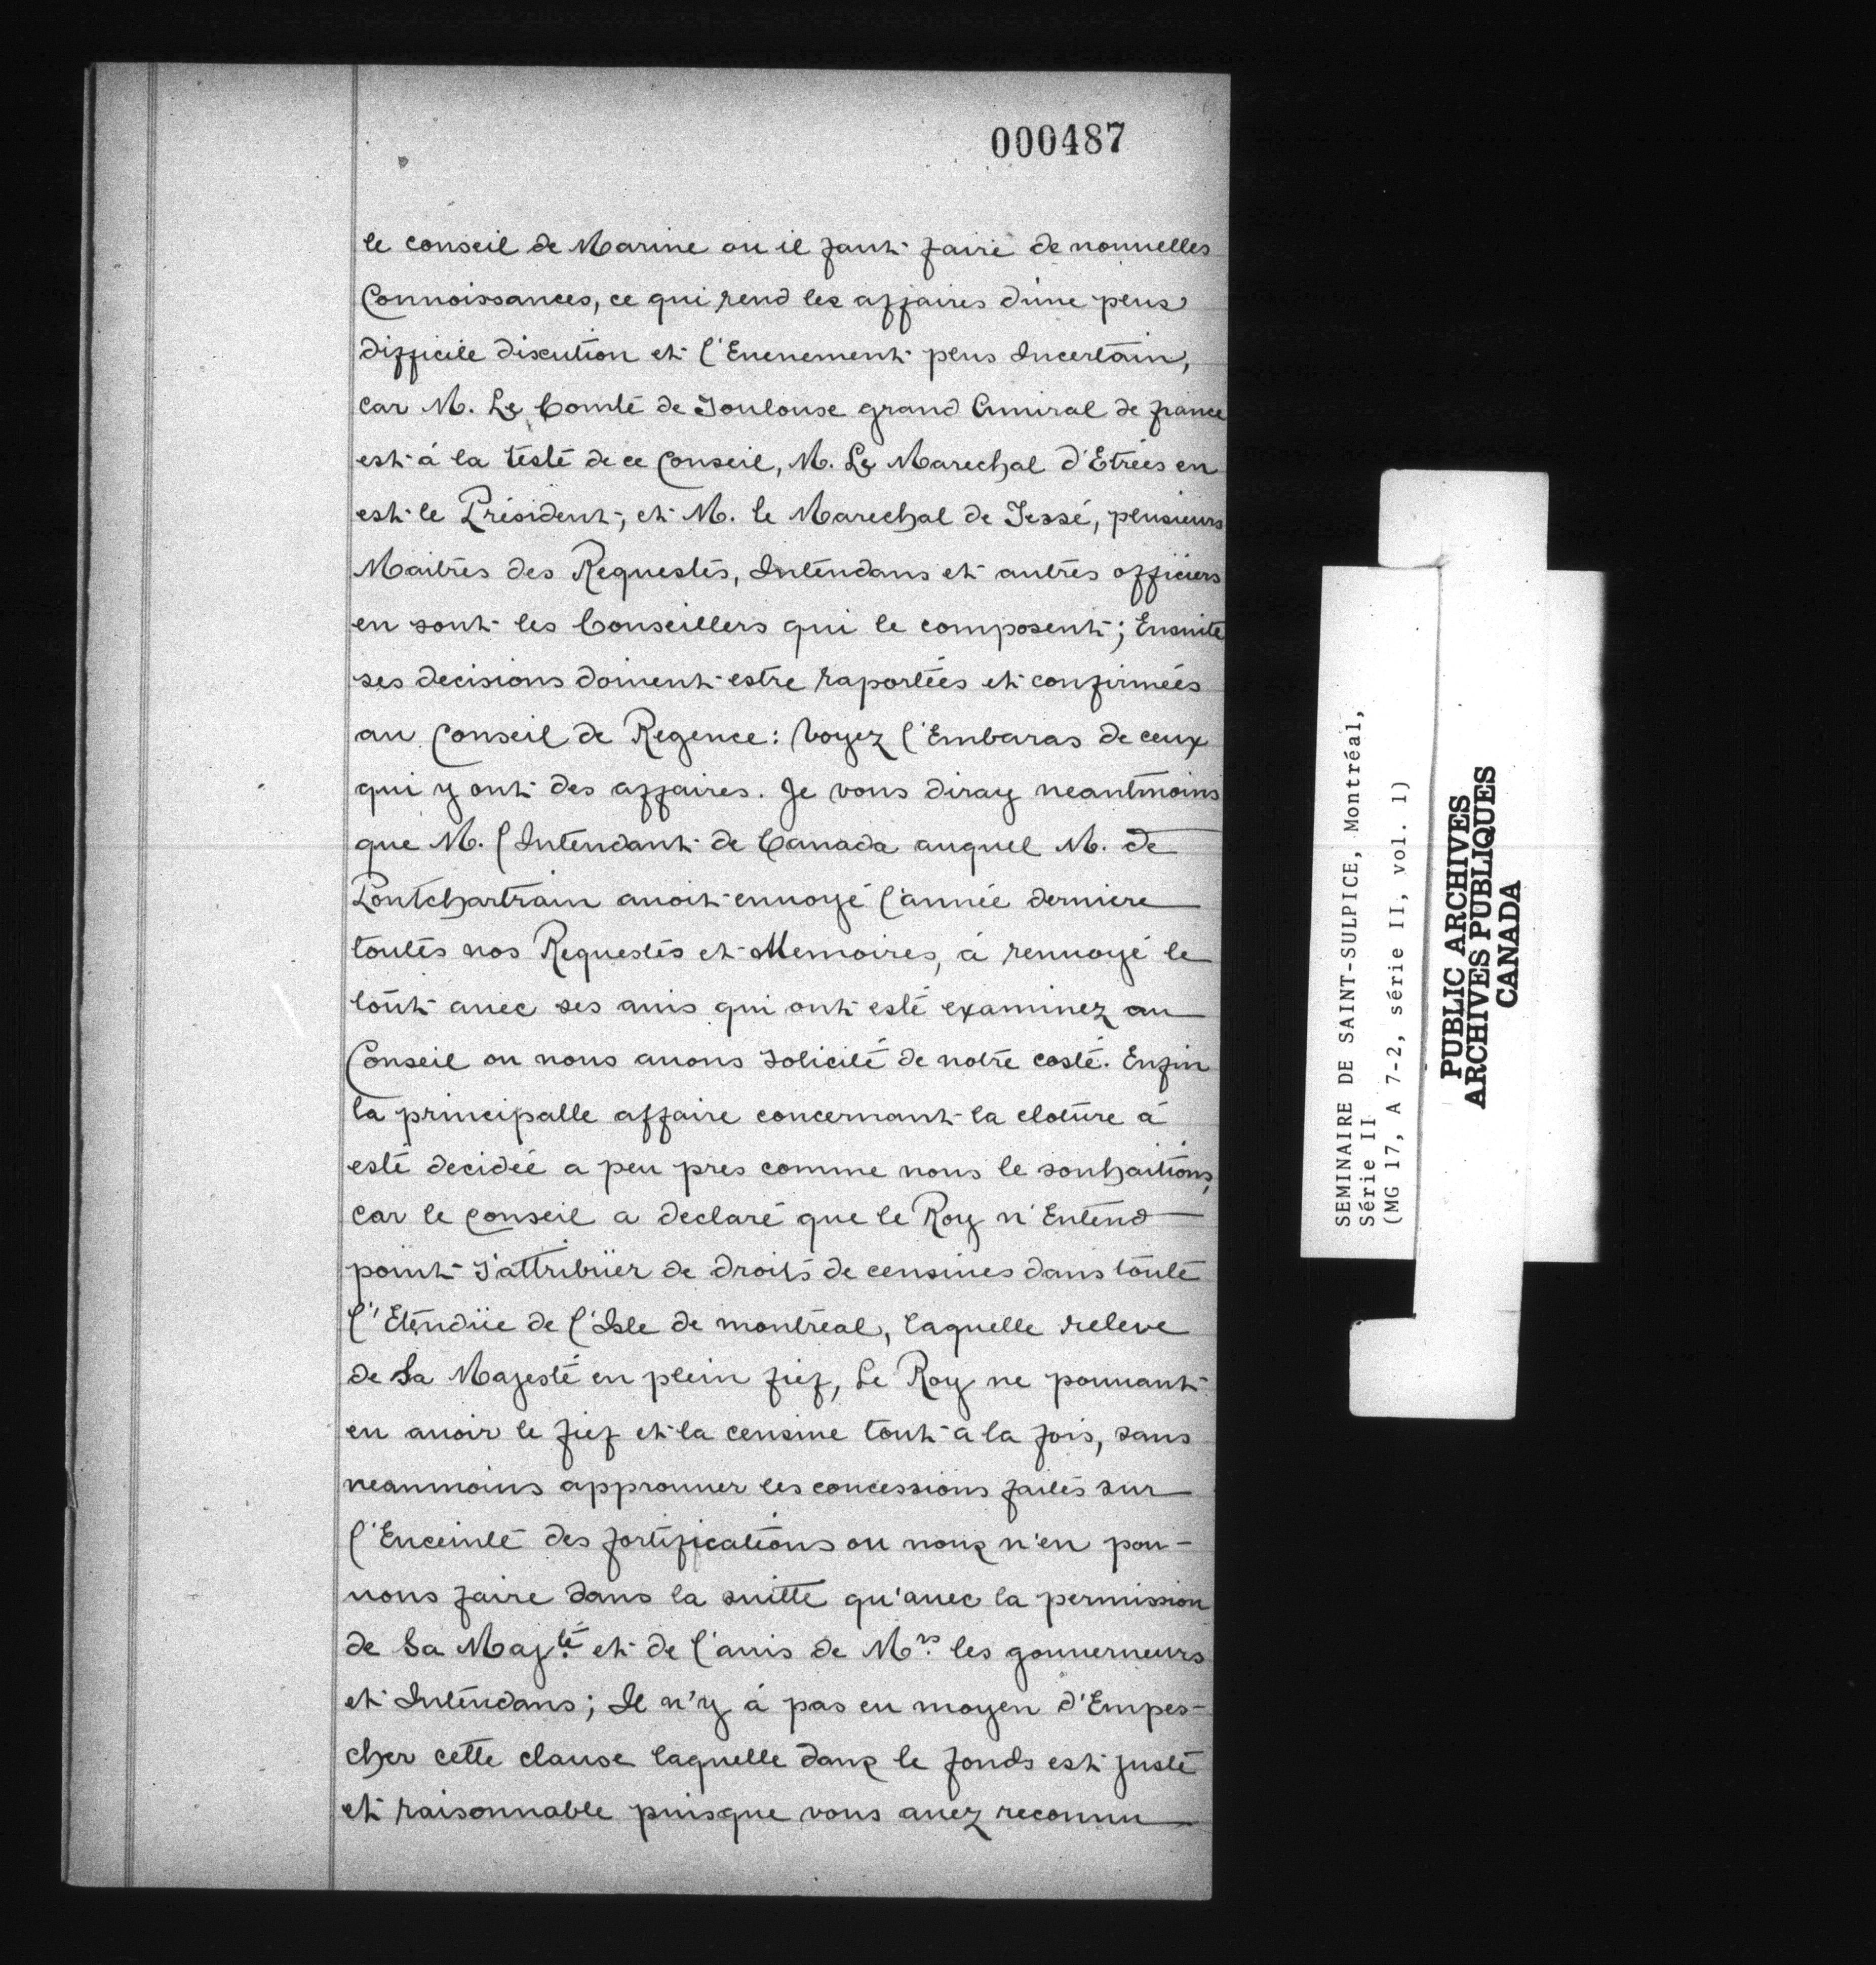 000487
le conseil de Marine ou il faut faire de nouuelles
Connoissances, ce qui rend les affaires d'une plus
difficile discution et l'Euenement plus Incertain,
car M. Le Comte de Toulouse grand Amiral de france
est à la teste de ce Conseil, M. Le Marechal d'Etrées en
est le Président, et M. le Marechal de Tessé, plusieurs
Maitres des Requestes, Intendans et autres officiers
en sont les Conseillers qui le composent; Ensuite
ses decisions doiuent estre raportées et confirmées
au Conseil de Regence: Voyez l'Embaras de ceux
qui y ont des affaires. Je vous diray neantmoins
que M. l'Intendant de Canada auquel M. de
Pontchartrain auoit enuoyé l'année derniere
toutes nos Requestes et Memoires, à renuoyé le
tout auec ses auis qui ont esté examinez au
Conseil ou nous auons solicité de notre costé. Enfin
la principalle affaire concernant la cloture à
esté decidée a peu pres comme nous le souhaitions,
car le conseil a declaré que le Roy n'Entend
point s'attribüer de droits de censiues dans toute
l'Etendüe de l'Isle de montréal, laquelle releve
de Sa Majesté en plein fief, Le Roy ne pouuant
en auoir le fief et la censiue tout a la fois, sans
neanmoins approuuer les concessions faites sur
l'Enceinte des fortifications ou nous n'en pou-
uons faire dans la suitte qu'auec la permission
de Sa Maj.té et de l'auis de M.rs les gouuerneurs
et Intendans; Il n'y à pas eu moyen d'Empes-
cher cette clause laquelle dans le fonds est juste
et raisonnable puisque vous auez reconnu
SEMINAIRE DE SAINT-SULPICE, Montréal,
Série II
(MG 17, A 7-2, série II, vol. 1)
PUBLIC ARCHIVES
ARCHIVES PUBLIQUES
CANADA